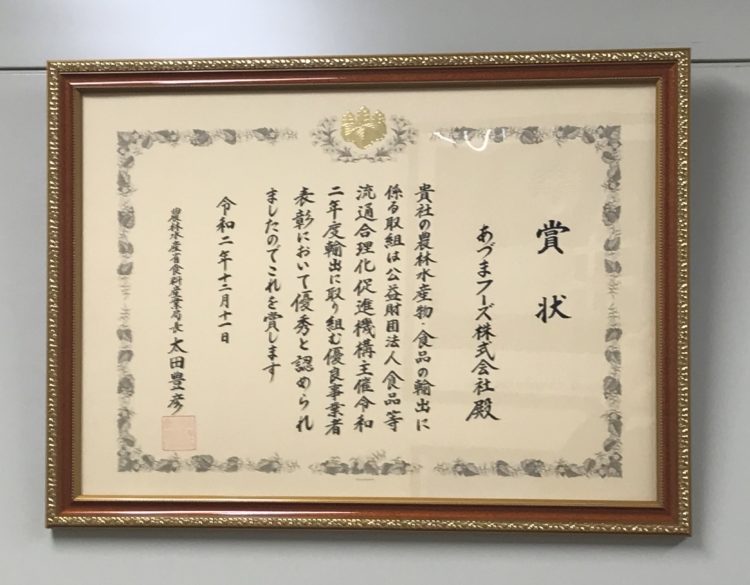 賞状
あづまフーズ株式会社殿
貴社の農林水産物・食品の輸出に
係る取組は公益財団法人食品等
流通合理化促進機構主催令和
二年度輸出に取り組む優良事業者
表彰において優秀と認められ
ましたのでこれを賞します
令和二年十二月十一日
農林水産省食料産業局長 太田豊彦